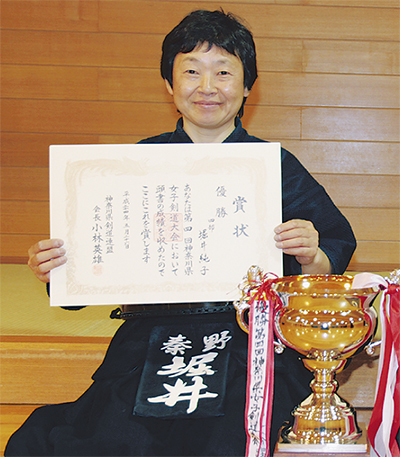 賞状
優勝
四部
堀井純子
あなたは第四回神奈川県
女子剣道大会において
頭書の成績を収めたので
ここにこれを賞します
神奈川県剣道連盟
会長 小林英雄
秦野
堀井
優勝 第四回神奈川県女子剣道